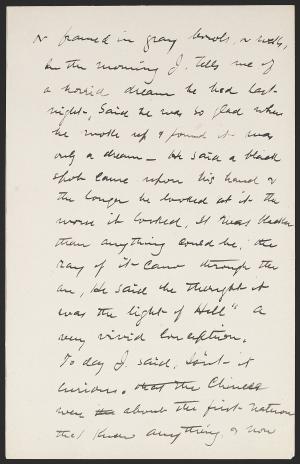 & framed in gray woods, & walks,
In the morning J. tells me of
a horrid dream he had last
night, Said he was so glad when
he woke up & found it was
only a dream - He said a black
spot came upon his hand &
the longer he looked at it the
worse it looked, It was blacker
than anything could be, the
ray of it came through the
air, He said he thought it
was the light of Hell" a
very vivid conception.
To day J. said, isn't it
curious. that the Chinese
were the about the first nation
that knew anything, & now